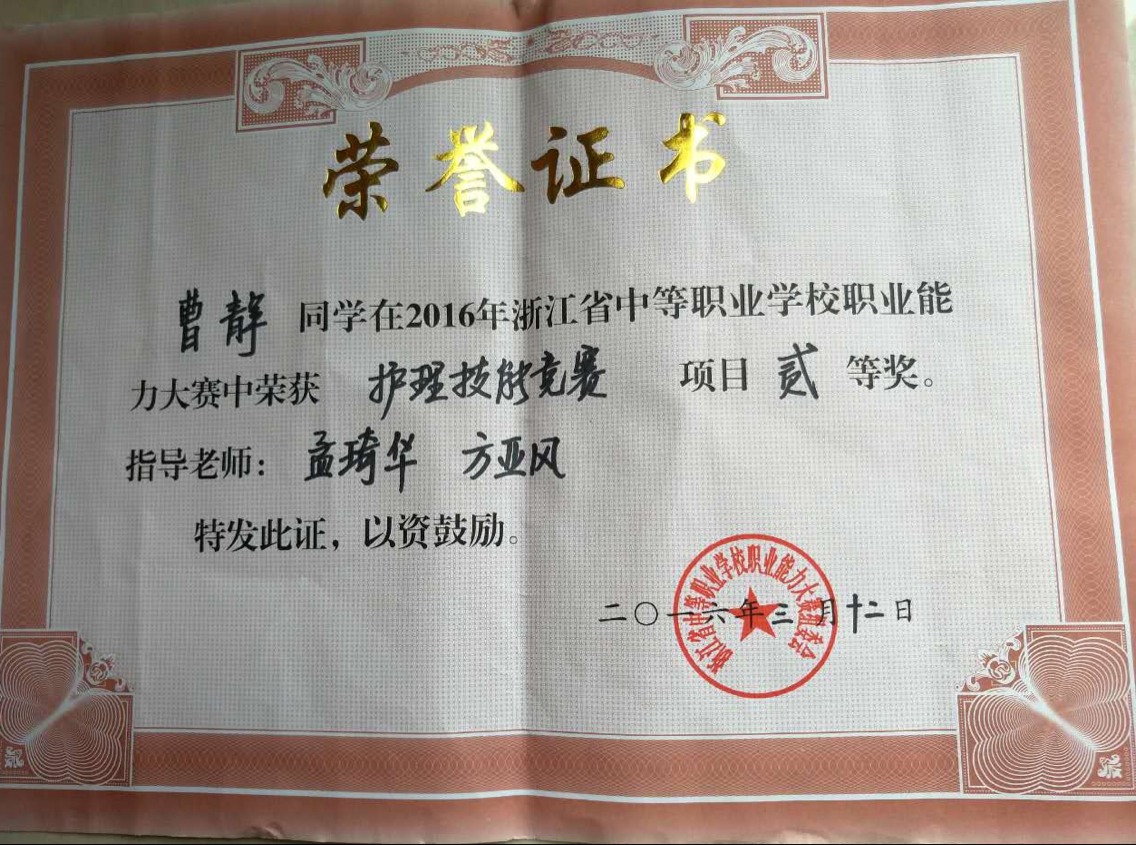 荣誉证书
曹静 同学在2016年浙江省中等职业学校职业能
力大赛中荣获 护理技能竞赛 项目 贰 等奖。
指导老师: 孟琦华 方亚风
特发此证，以资鼓励。
二〇一六年三月十二日
浙江省中等职业学校职业能力大赛组委会